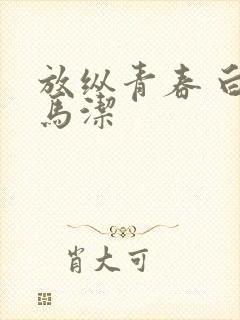 放纵青春 白
馬潔
肖大可